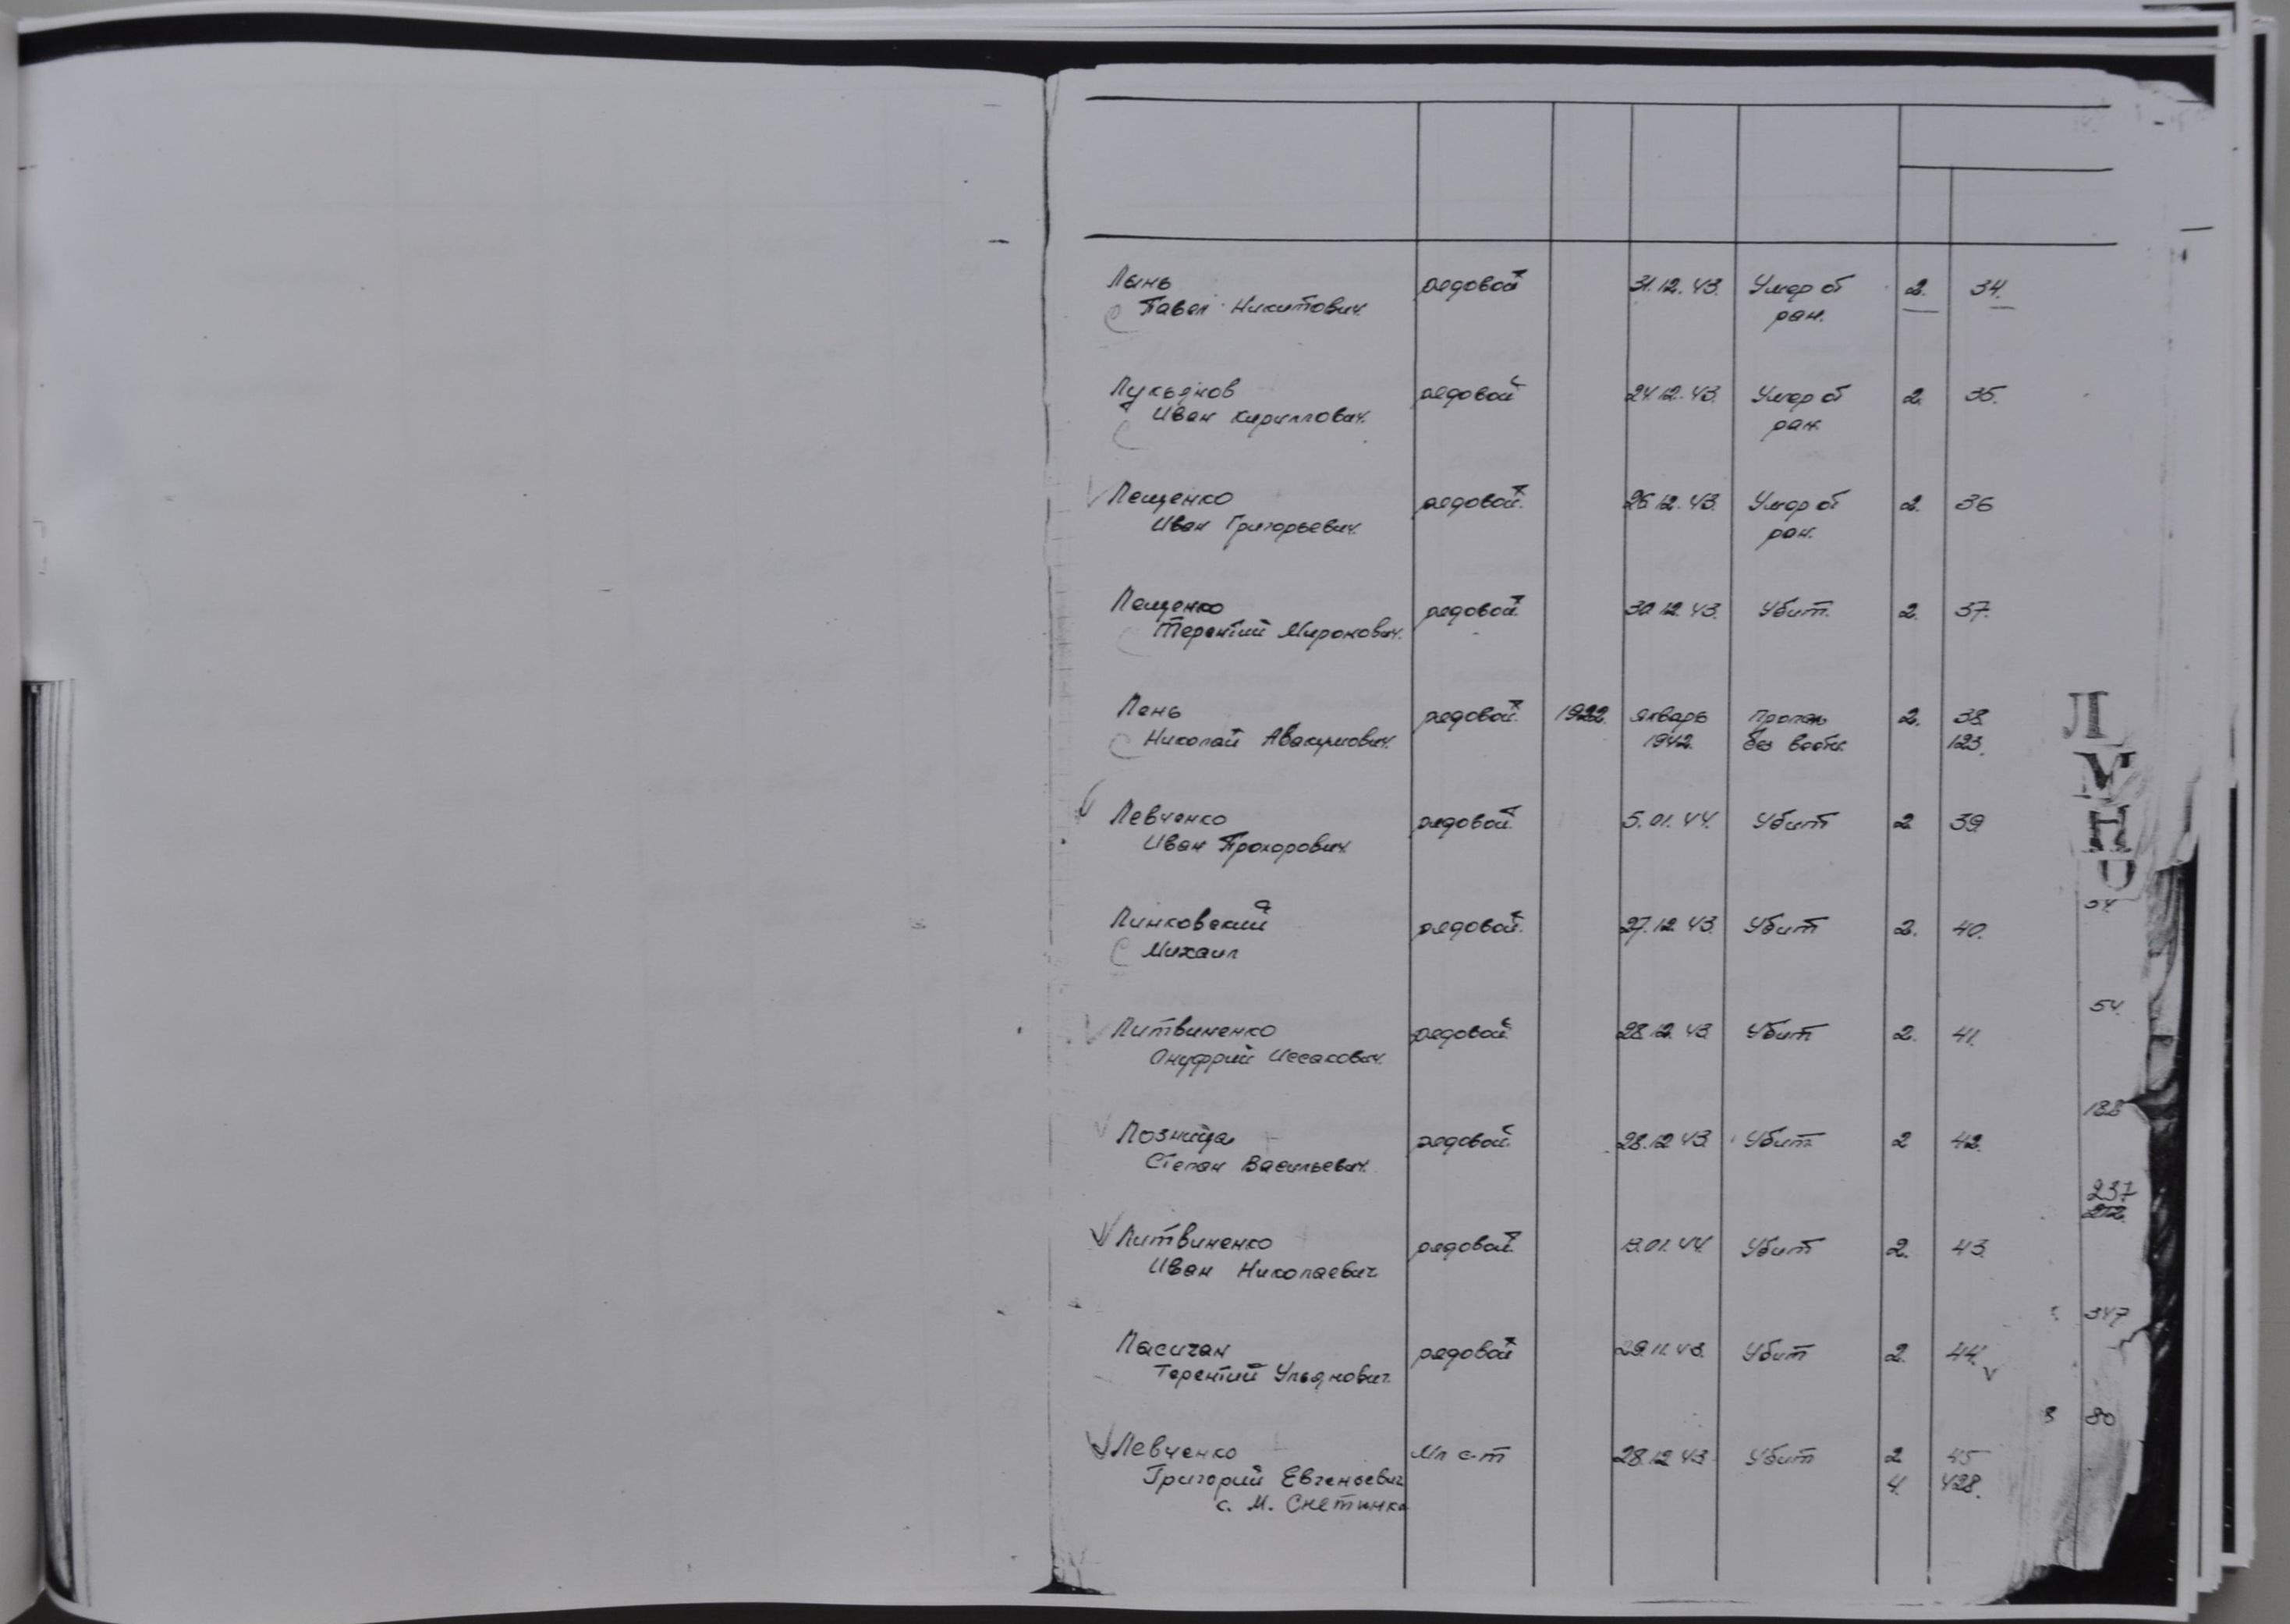 Лынь рядовой 31.12.43. Умер от 2. 34.
Павел Никитович. ран.
Лукьянов рядовой 24.12.43. Умер от 2. 35.
Иван Кириллович. ран.
Лещенко рядовой. 26.12.43. Умер от 2. 36
Иван Григорьевич. ран.
Лещенко рядовой. 30.12.43. Убит. 2. 37.
Терентий Миронович.
Лень рядовой. 1922. январь Пропал 2. 38.
Николай Авакумович. 1942. без вести. 123.
Левченко рядовой. 5.01.44. Убит 2. 39
Иван Прохорович.
Линковский рядовой. 27.12.43. Убит 2. 40.
Михаил
Литвиненко рядовой 28.12.43 Убит 2. 41.
Онуфрий Иссакович.
Лозница рядовой. 28.12.43 Убит 2 42.
Степан Васильевич.
Литвиненко рядовой. 13.01.44. Убит 2. 43.
Иван Николаевич
Ласичан рядовой 29.11.43. Убит 2. 44.
Терентий Ульянович.
Левченко Мл с-т 28.12.43 Убит 2 45
Григорий Евгеньевич 4. 428.
с. М. Снетинка
Л
М
Н
О
54.
237
347
80